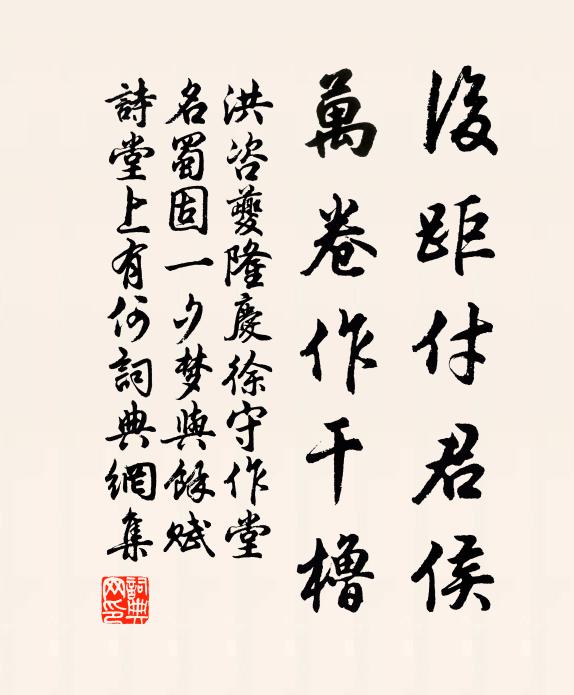 後距付君侯
萬卷作干櫓
洪咨夔隆慶徐守作堂
名蜀固一夕梦與餘赋
詩堂上有何詞典網集
詞典网印